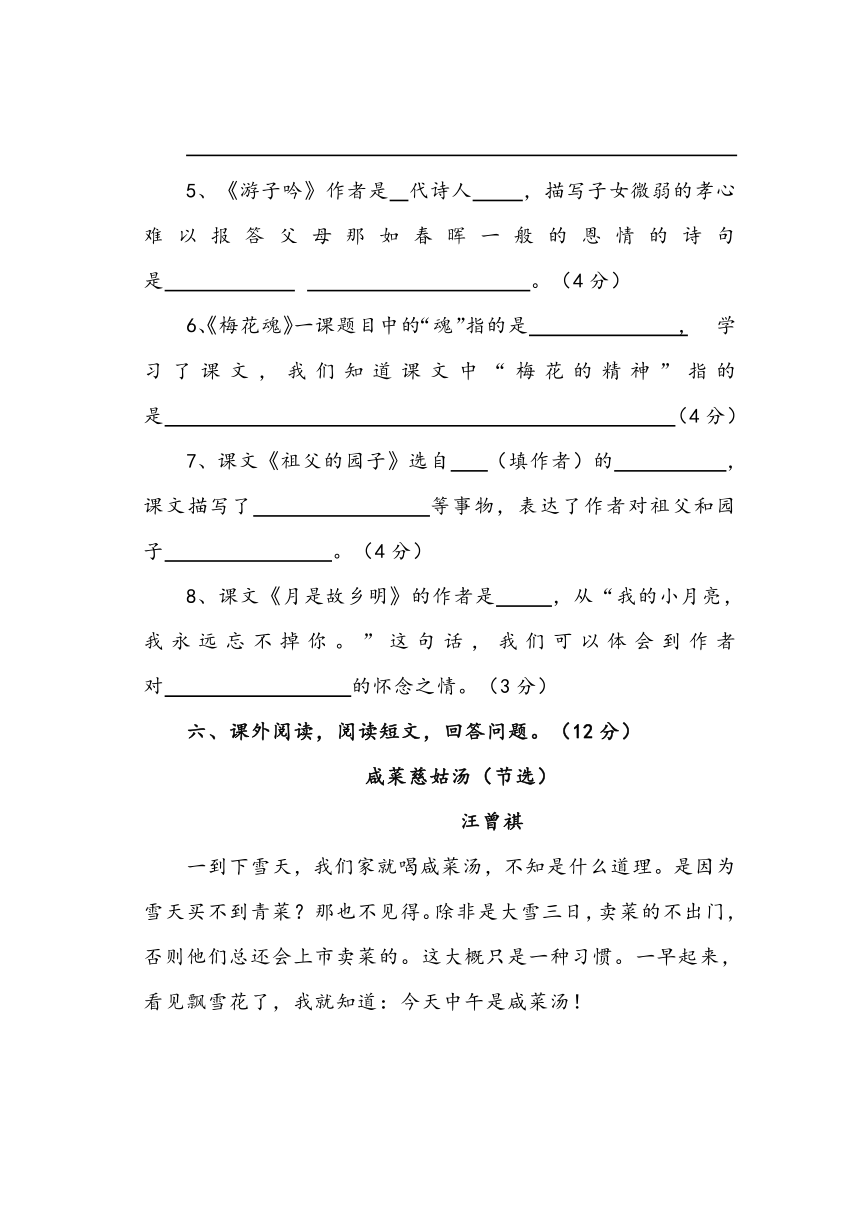 5、《游子吟》作者是__代诗人_____，描写子女微弱的孝心
难以报答父母那如春晖一般的恩情的诗句
是____________ ____________________。（4分）
6、《梅花魂》一课题目中的“魂”指的是______________， 学
习了课文，我们知道课文中“梅花的精神”指的
是______________________________________________（4分）
7、课文《祖父的园子》选自____（填作者）的__________，
课文描写了________________等事物，表达了作者对祖父和园
子_______________。（4分）
8、课文《月是故乡明》的作者是_____，从“我的小月亮，
我永远忘不掉你。”这句话，我们可以体会到作者
对_________________的怀念之情。（3分）
六、课外阅读，阅读短文，回答问题。（12分）
咸菜慈姑汤（节选）
汪曾祺
一到下雪天，我们家就喝咸菜汤，不知是什么道理。是因为
雪天买不到青菜？那也不见得。除非是大雪三日，卖菜的不出门，
否则他们总还会上市卖菜的。这大概只是一种习惯。一早起来，
看见飘雪花了，我就知道：今天中午是咸菜汤！